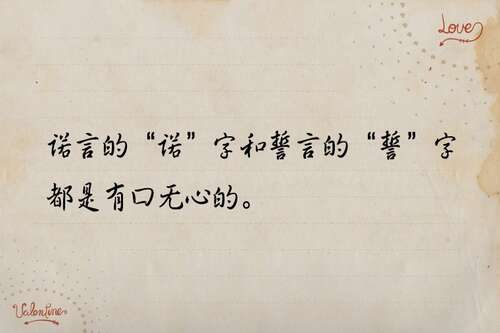 Love
诺言的“诺”字和誓言的“誓”字
都是有口无心的。
Valentine